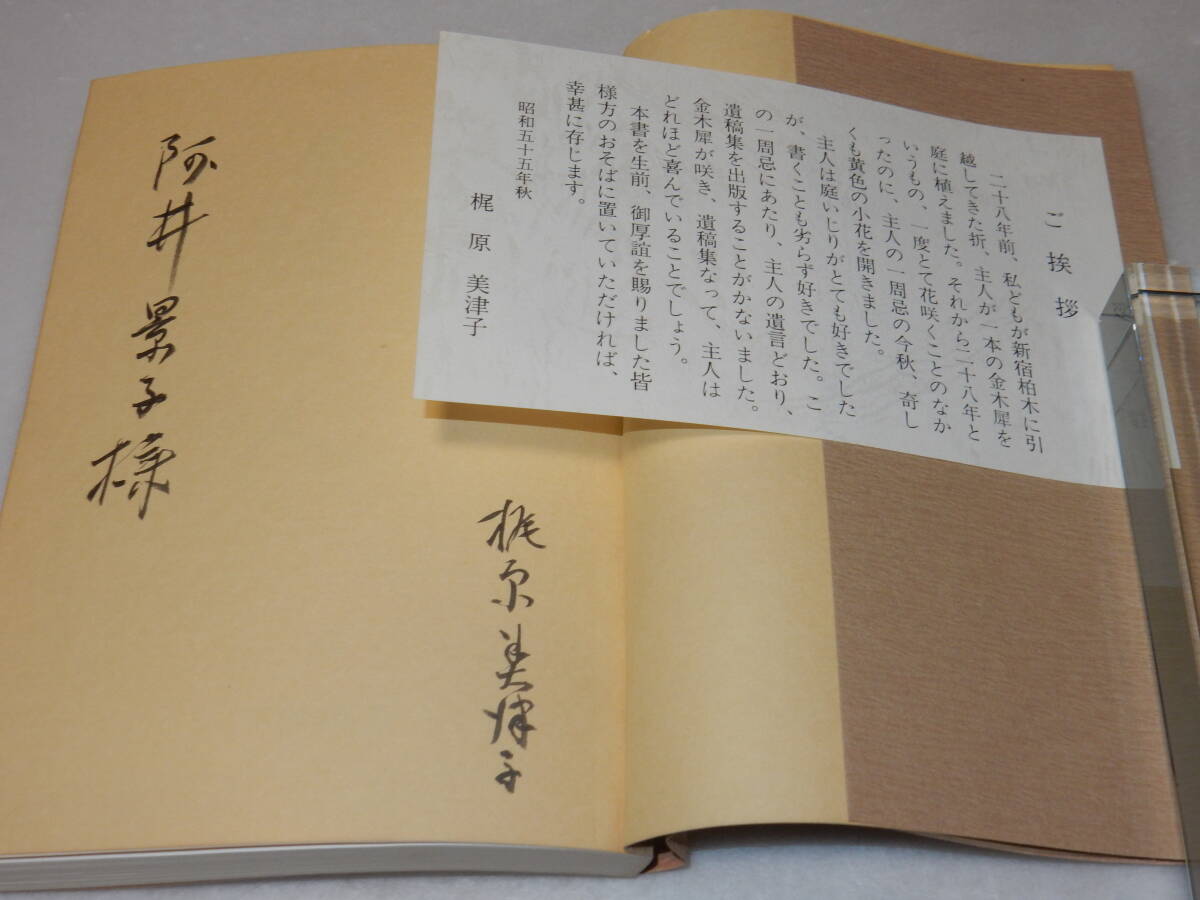 ご挨拶
二十八年前、私どもが新宿柏木に引
越してきた折、主人が一本の金木犀を
庭に植えました。それから二十八年と
いうもの、一度とて花咲くことのなか
ったのに、主人の一周忌の今秋、奇し
くも黄色の小花を開きました。
主人は庭いじりがとても好きでした
が、書くことも劣らず好きでした。こ
の一周忌にあたり、主人の遺言どおり、
遺稿集を出版することがかないました。
金木犀が咲き、遺稿集なって、主人は
どれほど喜んでいることでしょう。
本書を生前、御厚誼を賜りました皆
様方のおそばに置いていただければ、
幸甚に存じます。
昭和五十五年秋
梶原美津子
阿井景子様
梶原美津子